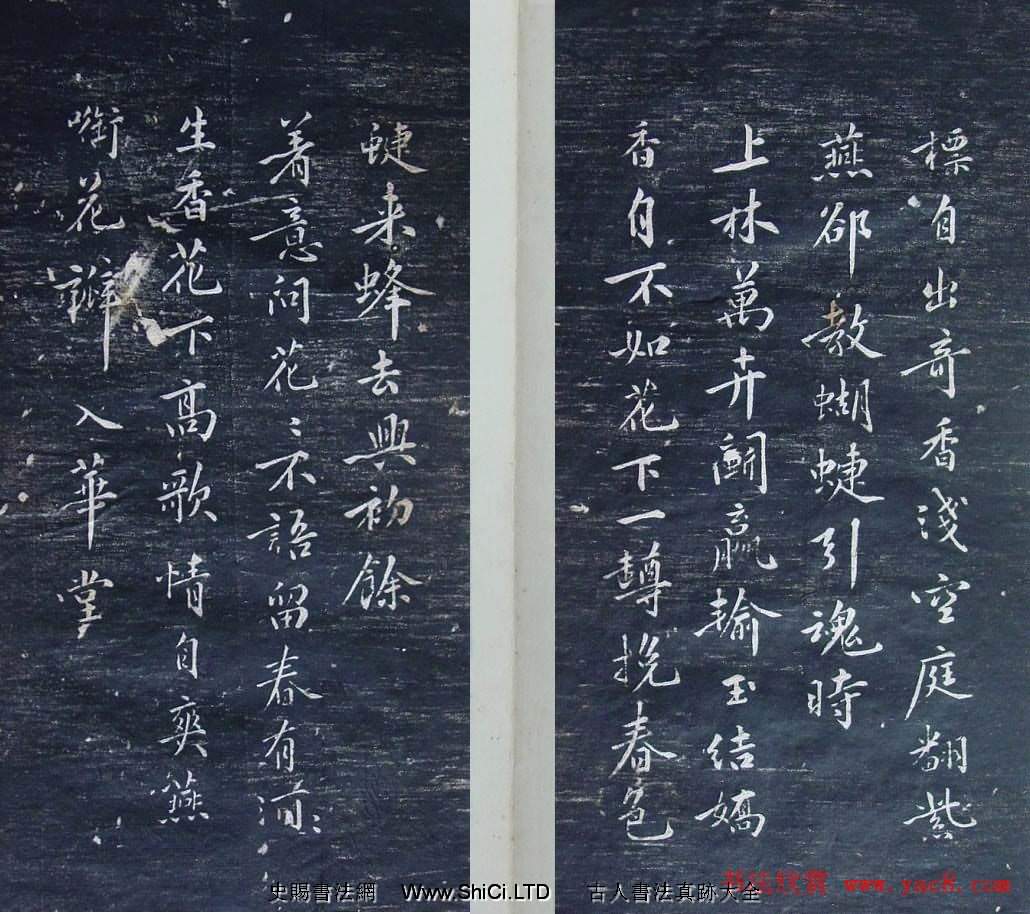 標自出奇香淺空庭翻紫
燕郤教蝴蜨引魂時
上林萬卉鬭贏輸玉結嬌
香自不如花下一鐏挽春色
蜨来蜂去興初餘
着意问花〻不語留春有酒〻
生香花下高歌情自爽燕
啣花瓣入華堂
史賜書法網 Www.ShiCi.LTD 古人書法真跡大全
书法欣赏 www.yac8.com